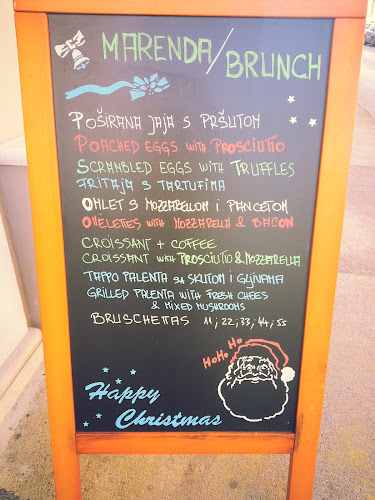 MARENDA/BRUNCH
POŠIRANA JAJA S PRŠUTOM
POACHED EGGS WITH PROSCIUTIO
SCRAMBLED EGGS WITH TRUFFLES
FRITAJA S TARTUFIMA
OMLET S MOZZARELLOM I PANCETOM
OMELETTES WITH MOZZARELLA & BACON
CROISSANT + COFFEE
CROISSANT WITH PROSCIUTIO & MOZZARELLA
TAPPO PALENTA SA SKUTOM I GLJIVAMA
GRILLED PALENTA WITH FRESH CHEES
& MIXED MUSHROOMS
BRUSCHETTAS 11; 22; 33; 44; 55
HOHO HO
Happy
Christmas